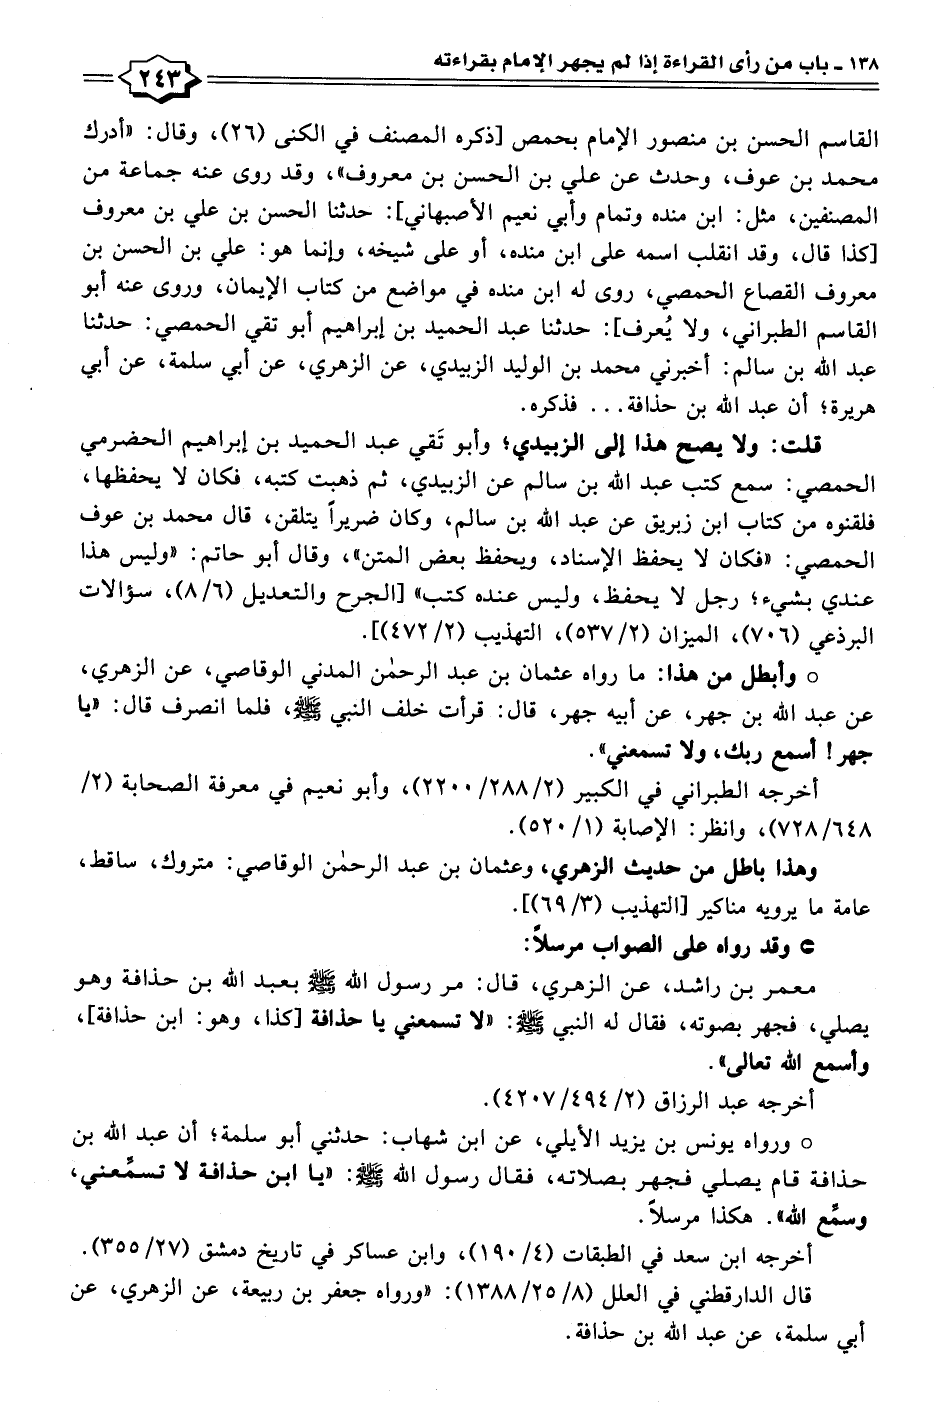 ١٣٨ - باب من رأى القراءة إذا لم يجهر الإمام بقراءته
٢٤٣
القاسم الحسن بن منصور الإمام بحمص [ذكره المصنف في الكنى (٢٦)، وقال: «أدرك
محمد بن عوف، وحدث عن علي بن الحسن بن معروف»، وقد روى عنه جماعة من
المصنفين، مثل: ابن منده وتمام وأبي نعيم الأصبهاني]: حدثنا الحسن بن علي بن معروف
[كذا قال، وقد انقلب اسمه على ابن منده، أو على شيخه، وإنما هو: علي بن الحسن بن
معروف القصاع الحمصي، روى له ابن منده في مواضع من كتاب الإيمان، وروى عنه أبو
القاسم الطبراني، ولا يُعرف]: حدثنا عبد الحميد بن إبراهيم أبو تقي الحمصي: حدثنا
عبد الله بن سالم: أخبرني محمد بن الوليد الزبيدي، عن الزهري، عن أبي سلمة، عن أبي
هريرة؛ أن عبد الله بن حذافة... فذكره.
قلت: ولا يصح هذا إلى الزبيدي؛ وأبو تَقي عبد الحميد بن إبراهيم الحضرمي
الحمصي: سمع كتب عبد الله بن سالم عن الزبيدي، ثم ذهبت كتبه، فكان لا يحفظها،
فلقنوه من كتاب ابن زبريق عن عبد الله بن سالم، وكان ضريراً يتلقن، قال محمد بن عوف
الحمصي: «فكان لا يحفظ الإسناد، ويحفظ بعض المتن»، وقال أبو حاتم: «وليس هذا
عندي بشيء؛ رجل لا يحفظ، وليس عنده كتب» [الجرح والتعديل (٨/٦)، سؤالات
البرذعي (٧٠٦)، الميزان (٥٣٧/٢)، التهذيب (٤٧٢/٢)].
○ وأبطل من هذا: ما رواه عثمان بن عبد الرحمٰن المدني الوقاصي، عن الزهري،
عن عبد الله بن جهر، عن أبيه جهر، قال: قرأت خلف النبي ﷺ، فلما انصرف قال: «يا
جهر! أسمع ربك، ولا تسمعني».
أخرجه الطبراني في الكبير (٢٢٠٠/٢٨٨/٢)، وأبو نعيم في معرفة الصحابة (٢/
٧٢٨/٦٤٨)، وانظر: الإصابة (٥٢٠/١).
وهذا باطل من حديث الزهري، وعثمان بن عبد الرحمٰن الوقاصي: متروك، ساقط،
عامة ما يرويه مناكير [التهذيب (٦٩/٣)].
⊂ وقد رواه على الصواب مرسلاً:
معمر بن راشد، عن الزهري، قال: مر رسول الله ﷺ بعبد الله بن حذافة وهو
يصلي، فجهر بصوته، فقال له النبي ﷺ: «لا تسمعني يا حذافة [كذا، وهو: ابن حذافة]،
وأسمع الله تعالى».
أخرجه عبد الرزاق (٤٢٠٧/٤٩٤/٢).
○ ورواه يونس بن يزيد الأيلي، عن ابن شهاب: حدثني أبو سلمة؛ أن عبد الله بن
حذافة قام يصلي فجهر بصلاته، فقال رسول الله ﷺ: «يا ابن حذافة لا تسمِّعني،
وسمِّع الله». هكذا مرسلاً.
أخرجه ابن سعد في الطبقات (١٩٠/٤)، وابن عساكر في تاريخ دمشق (٣٥٥/٢٧).
قال الدارقطني في العلل (١٣٨٨/٢٥/٨): «ورواه جعفر بن ربيعة، عن الزهري، عن
أبي سلمة، عن عبد الله بن حذافة.